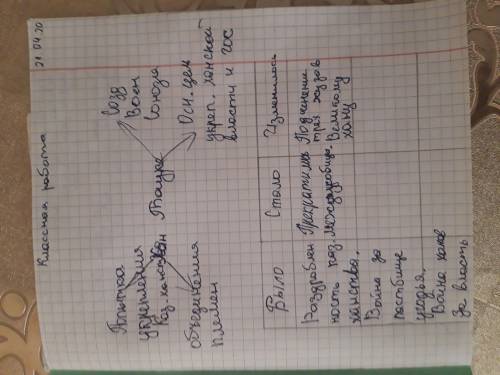 21.04.20
Классная работа
Попытка
укрепления
Каз. ханства
объединения
племен
Тауке
Созд
Воен
Союза
Осн. цен
укреп. ханской
власти и гос
Было
Стало
Изменилось
Раздроблен
ность каз.
ханства.
Война за
пастбище
угодья.
Война ханов
за власть
Прекратились
междоусобицы.
Подчинение
трёх жузов
Великому
хану